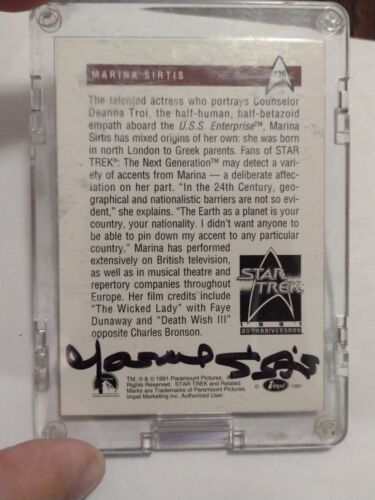 MARINA SIRTIS
The talented actress who portrays Counselor
Deanna Troi, the half-human, half-betazoid
empath aboard the U.S.S. Enterprise™, Marina
Sirtis has mixed origins of her own: she was born
in north London to Greek parents. Fans of STAR
TREK®: The Next Generation™ may detect a vari-
ety of accents from Marina — a deliberate affec-
tation on her part. "In the 24th Century, geo-
graphical and nationalistic barriers are not so evi-
dent," she explains. "The Earth as a planet is your
country, your nationality. I didn't want anyone to
be able to pin down my accent to any particular
country." Marina has performed
extensively on British television,
as well as in musical theatre and
repertory companies throughout
Europe. Her film credits include
"The Wicked Lady" with Faye
Dunaway and "Death Wish III"
opposite Charles Bronson.
STAR
TREK
1991
25TH ANNIVERSARY
Marina Sirtis
TM, ® & © 1991 Paramount Pictures. All
Rights Reserved. STAR TREK and Related
Marks are Trademarks of Paramount Pictures.
Impel Marketing Inc. Authorized User.
© Impel 1991